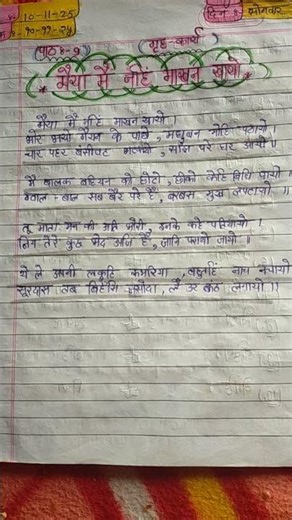 10-11-25
दिन सोमवार
(पाठ-9) (गृह-कार्य)
मैया मैं नहिं माखन खायो
मैया मैं नहिं माखन खायो।
भोर भयो गैयन के पाछे, मधुबन मोहि पठायो।
चार पहर बंसीवट भटक्यो, साँझ परे घर आयो॥
मैं बालक बहियन को छोटो, छीको केहि बिधि पायो।
ग्वाल-बाल सब बैर परे हैं, बरबस मुख लपटायो॥
तू माता मन की अति भोरी, इनके कहे पतियायो।
जिय तेरे कछु भेद उपजि है, जानि परायो जायो॥
ये ले अपनी लकुटि कमरिया, बहुतहिं नाच नचायो।
सूरदास तब बिहँसि जसोदा, लै उर कंठ लगायो॥